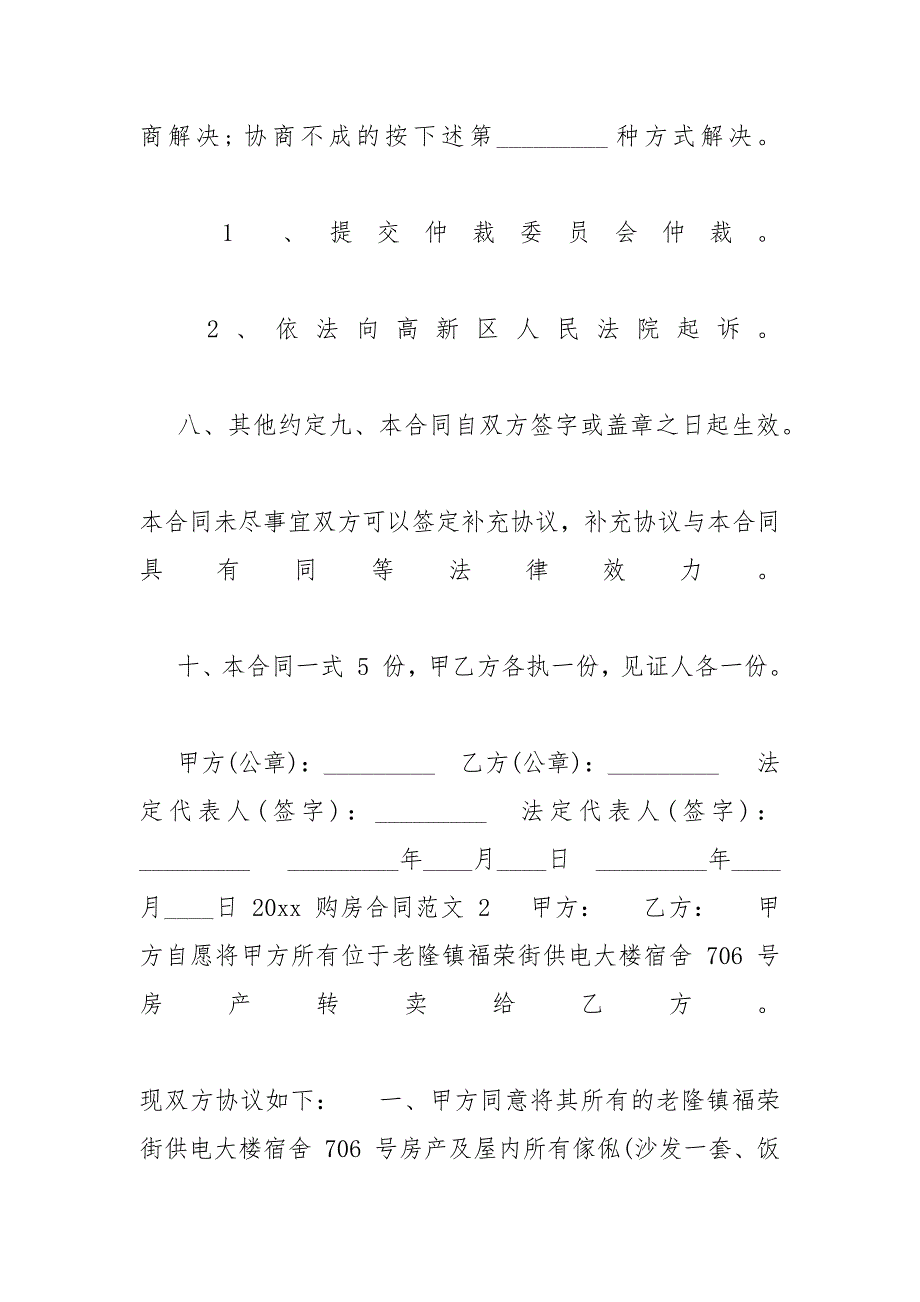 商解决;协商不成的按下述第_________种方式解决。
1、提交仲裁委员会仲裁。
2、依法向高新区人民法院起诉。
八、其他约定九、本合同自双方签字或盖章之日起生效。
本合同未尽事宜双方可以签定补充协议，补充协议与本合同
具有同等法律效力。
十、本合同一式 5 份，甲乙方各执一份，见证人各一份。
甲方(公章)：_________ 乙方(公章)：_________ 法
定代表人(签字)：_________ 法定代表人(签字)：
_________ _________年____月____日 _________年____
月____日 20xx 购房合同范文 2 甲方： 乙方： 甲
方自愿将甲方所有位于老隆镇福荣街供电大楼宿舍 706 号
房产转卖给乙方。
现双方协议如下： 一、甲方同意将其所有的老隆镇福荣
街供电大楼宿舍 706 号房产及屋内所有傢俬(沙发一套、饭